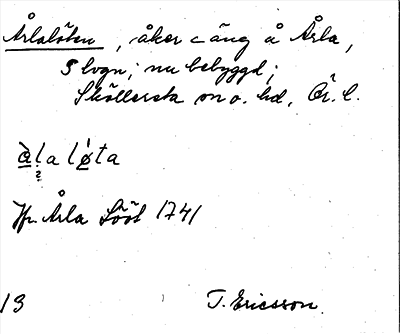 Årlalöten, åker o äng å Årla,
S logn; nu bebyggd;
Sköllersta sn o. hd, Ör. l.
àla løta
Jfr. Årla Lööt 1741
13
T. Ericsson